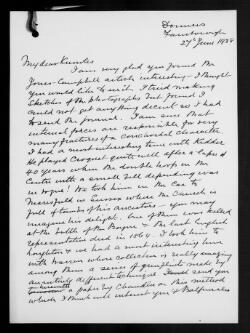 Downers
Farnborough
27th June 1938
My dear Reinolds
I am very glad you found the
Jones-Campbell article interesting – I thought
you would like to see it. I tried making
sketches of the photographs but found I
could not get anything decent so I had
to send the journal. I am sure that
internal forces are responsible for very
many fractures of a conchoidal character
I had a most interesting time with
He played Croquet quite well after a lapse of
40 years when the double hoops in the
Centre with a small bell depending was
in vogue! We took him in the car to
Maresfield in Sussex where the Church is
full of tombs of his ancestors – you may
imagine his delight. One of them was killed
at the battle of the Boyne & the last English
representative died in 1864. I took him to
Houghton & we had a most interesting time
with Warren whose collection is really amazing
among them a series of gunflints made by
different techniques. I send you
a paper by Chandler on this method
which I think will interest you &